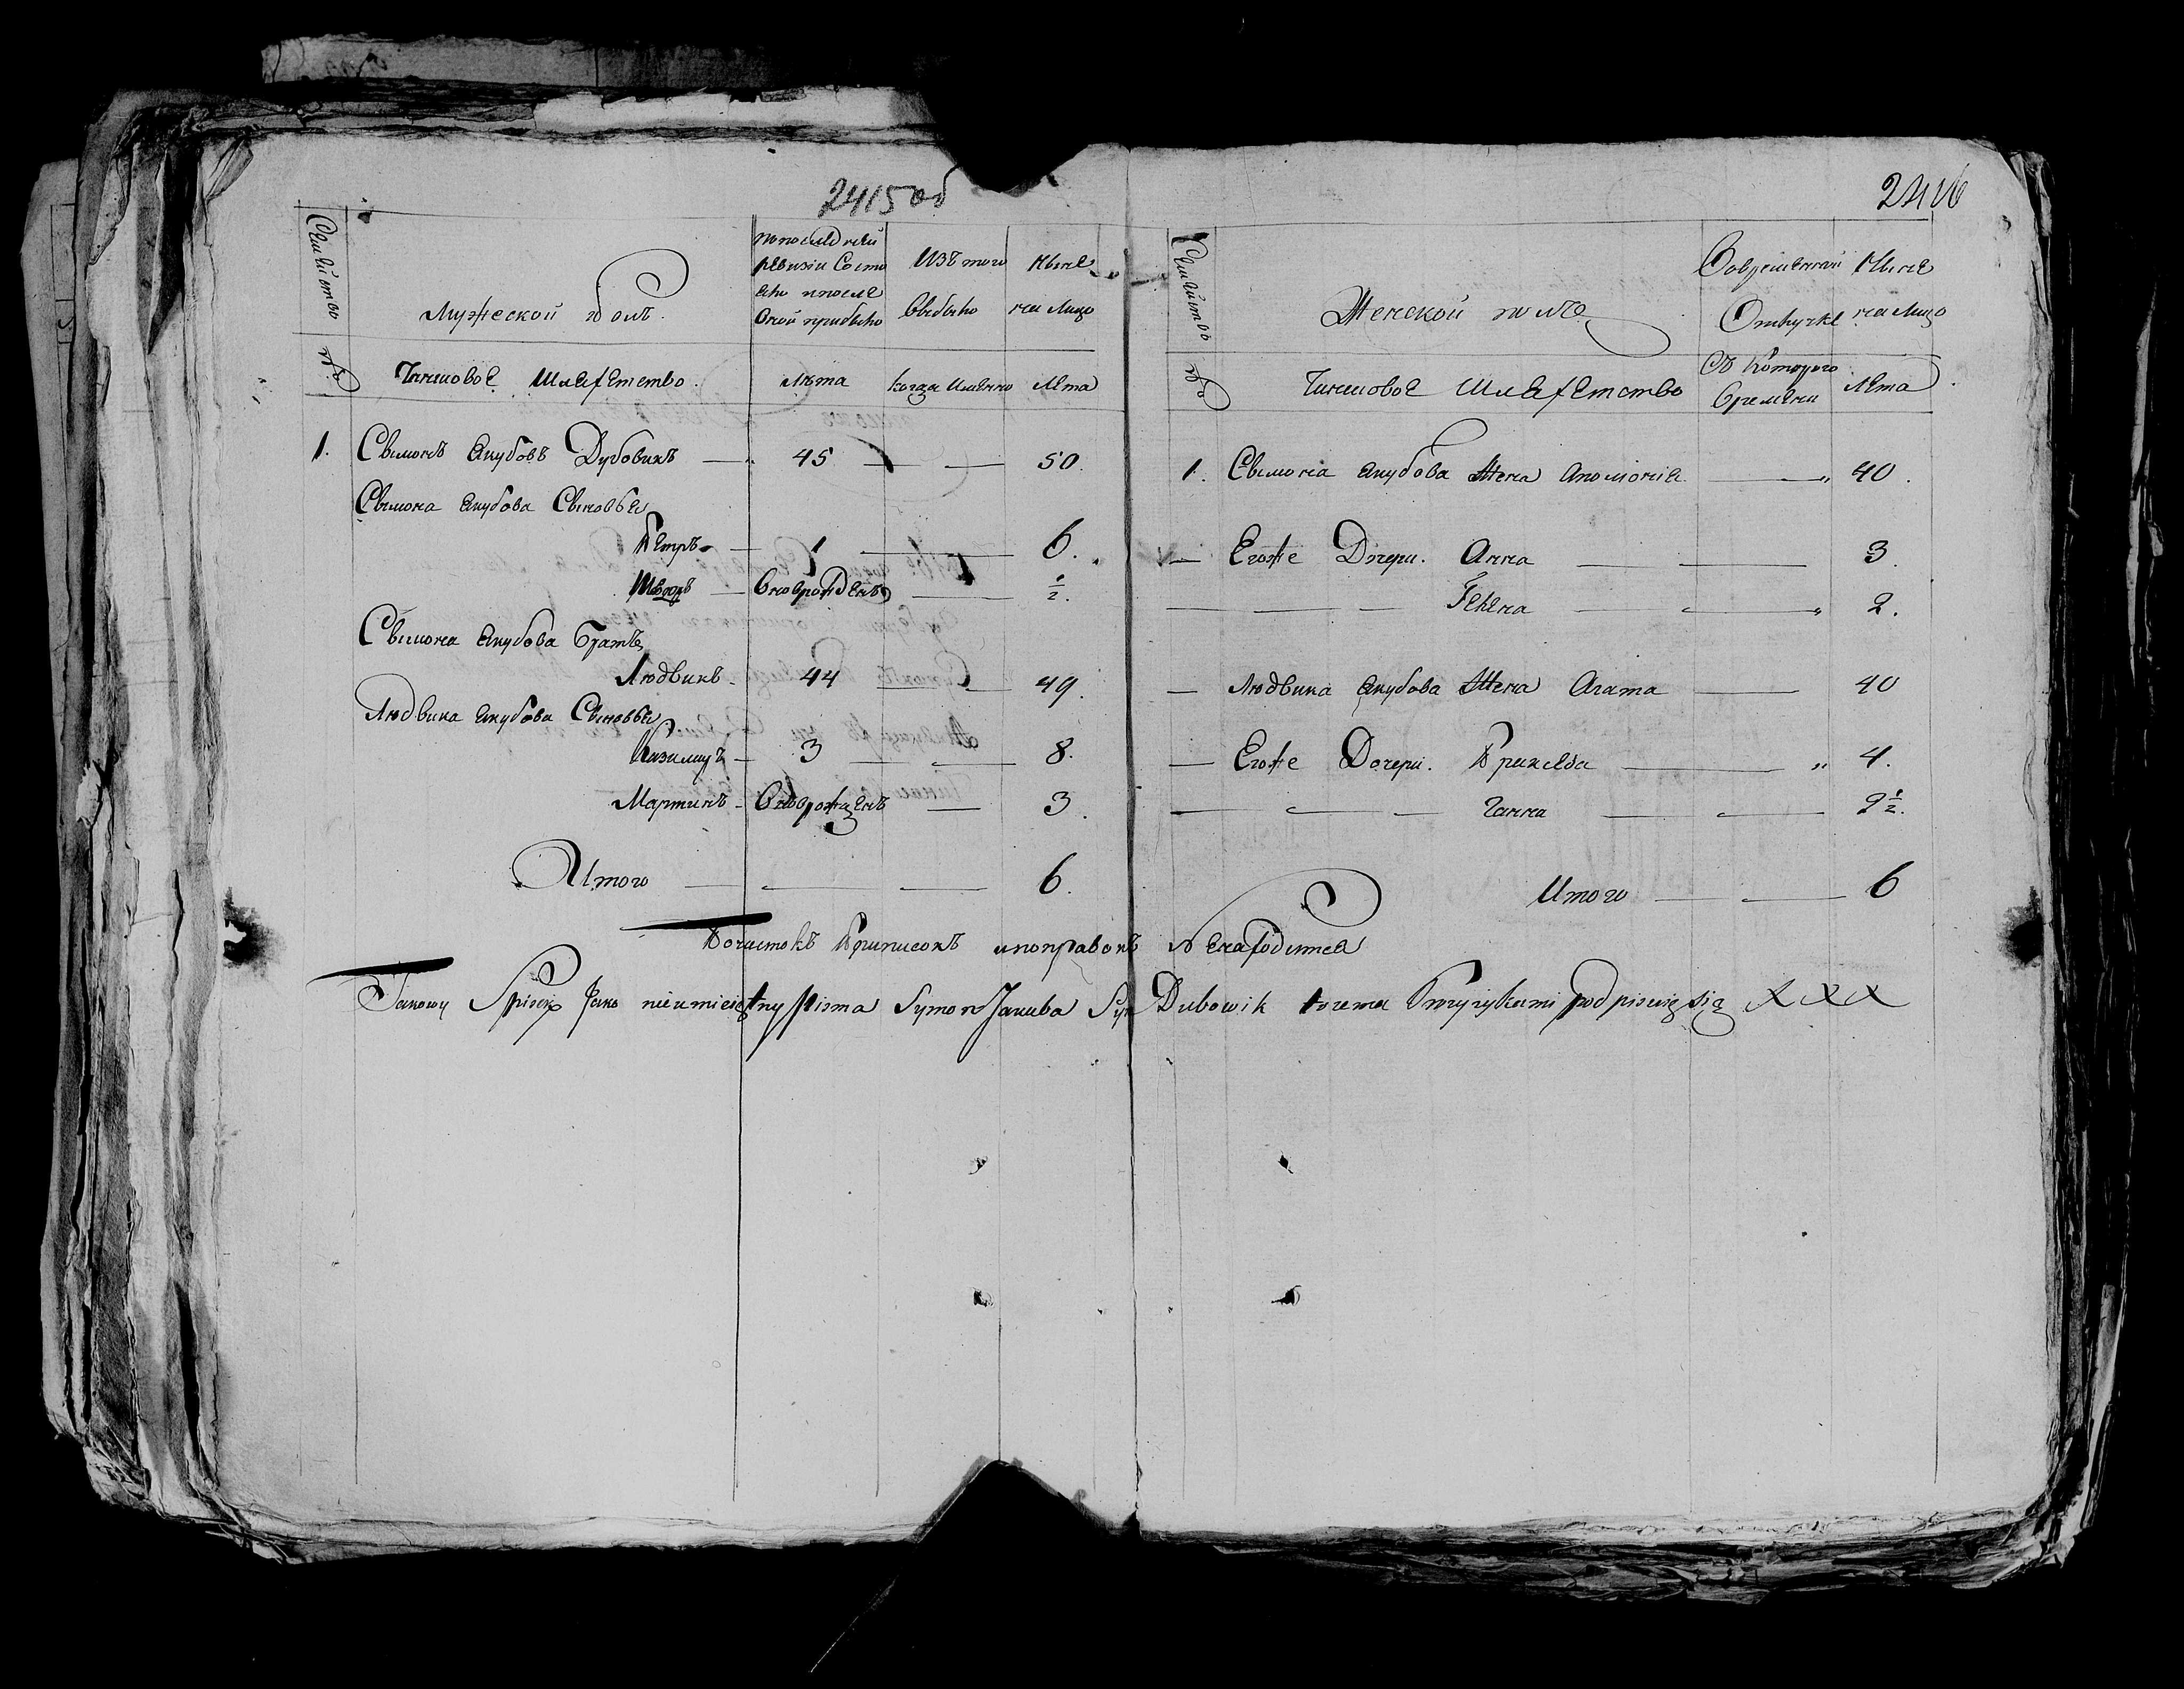 2415 об
Семейство
№
Мужеской полъ.
По последней
ревизіи Состо
яло и после
Оной прибыло
Изъ того
Выбыло
Ныне
на Лицо
Чиншовое Шляхетство.
Лѣта
Когда Именно
Лета
1. Сымонъ Якубовъ Дубовикъ — 45 — — 50.
Сымона Якубова Сыновья
Петръ — 1 — 6.
Новорожденъ — 1/2.
Сымона Якубова Братъ
Людвикъ 44 — 49.
Людвика Якубова Сыновья
Казимиръ — 3 — — 8.
Мартинъ — Новорожденъ — 3.
Итого — — — 6.
2416
Семейство
№
Женской полъ
Вовременной
Отлучке
Ныне
на Лицо
Чиншовое Шляхетство
Съ Которого
Времени
Лета
1. Сымона Якубова Жена Аполонія — „ 40.
— Егоже Дочери. Анна — — 3.
— — — Гелена — — „ 2.
— Людвика Якубова Жена Агата — 40
— Егоже Дочери. Пракседа — „ 4.
— — — Ганна — — 2 1/2.
Итого — — 6
Почистокъ Приписокъ и поправокъ Ненаходится
Takowy Spisek Jako nieumieiętny Pisma Symon Jakuba Syn Dubowik trzema Krzyżykami podpisuię się X X X